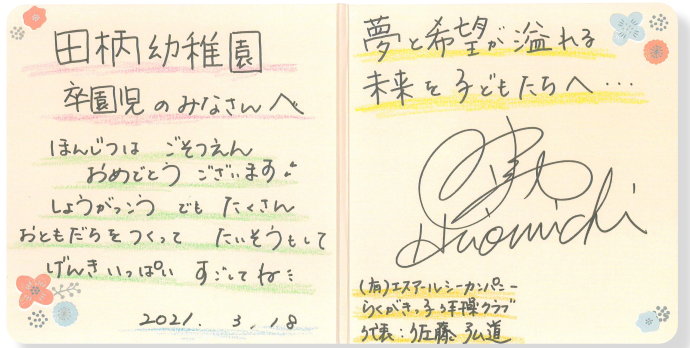 田柄幼稚園
卒園児のみなさんへ
ほんじつは ごそつえん
おめでとう ございます
しょうがっこう でも たくさん
おともだちを つくって たいそうもして
げんきいっぱい すごしてね
2021. 3. 18
夢と希望が溢れる
未来を子どもたちへ…
Hiromichi
(有)エスアールシーカンパニー
らくがきっ子体操クラブ
代表:佐藤弘道